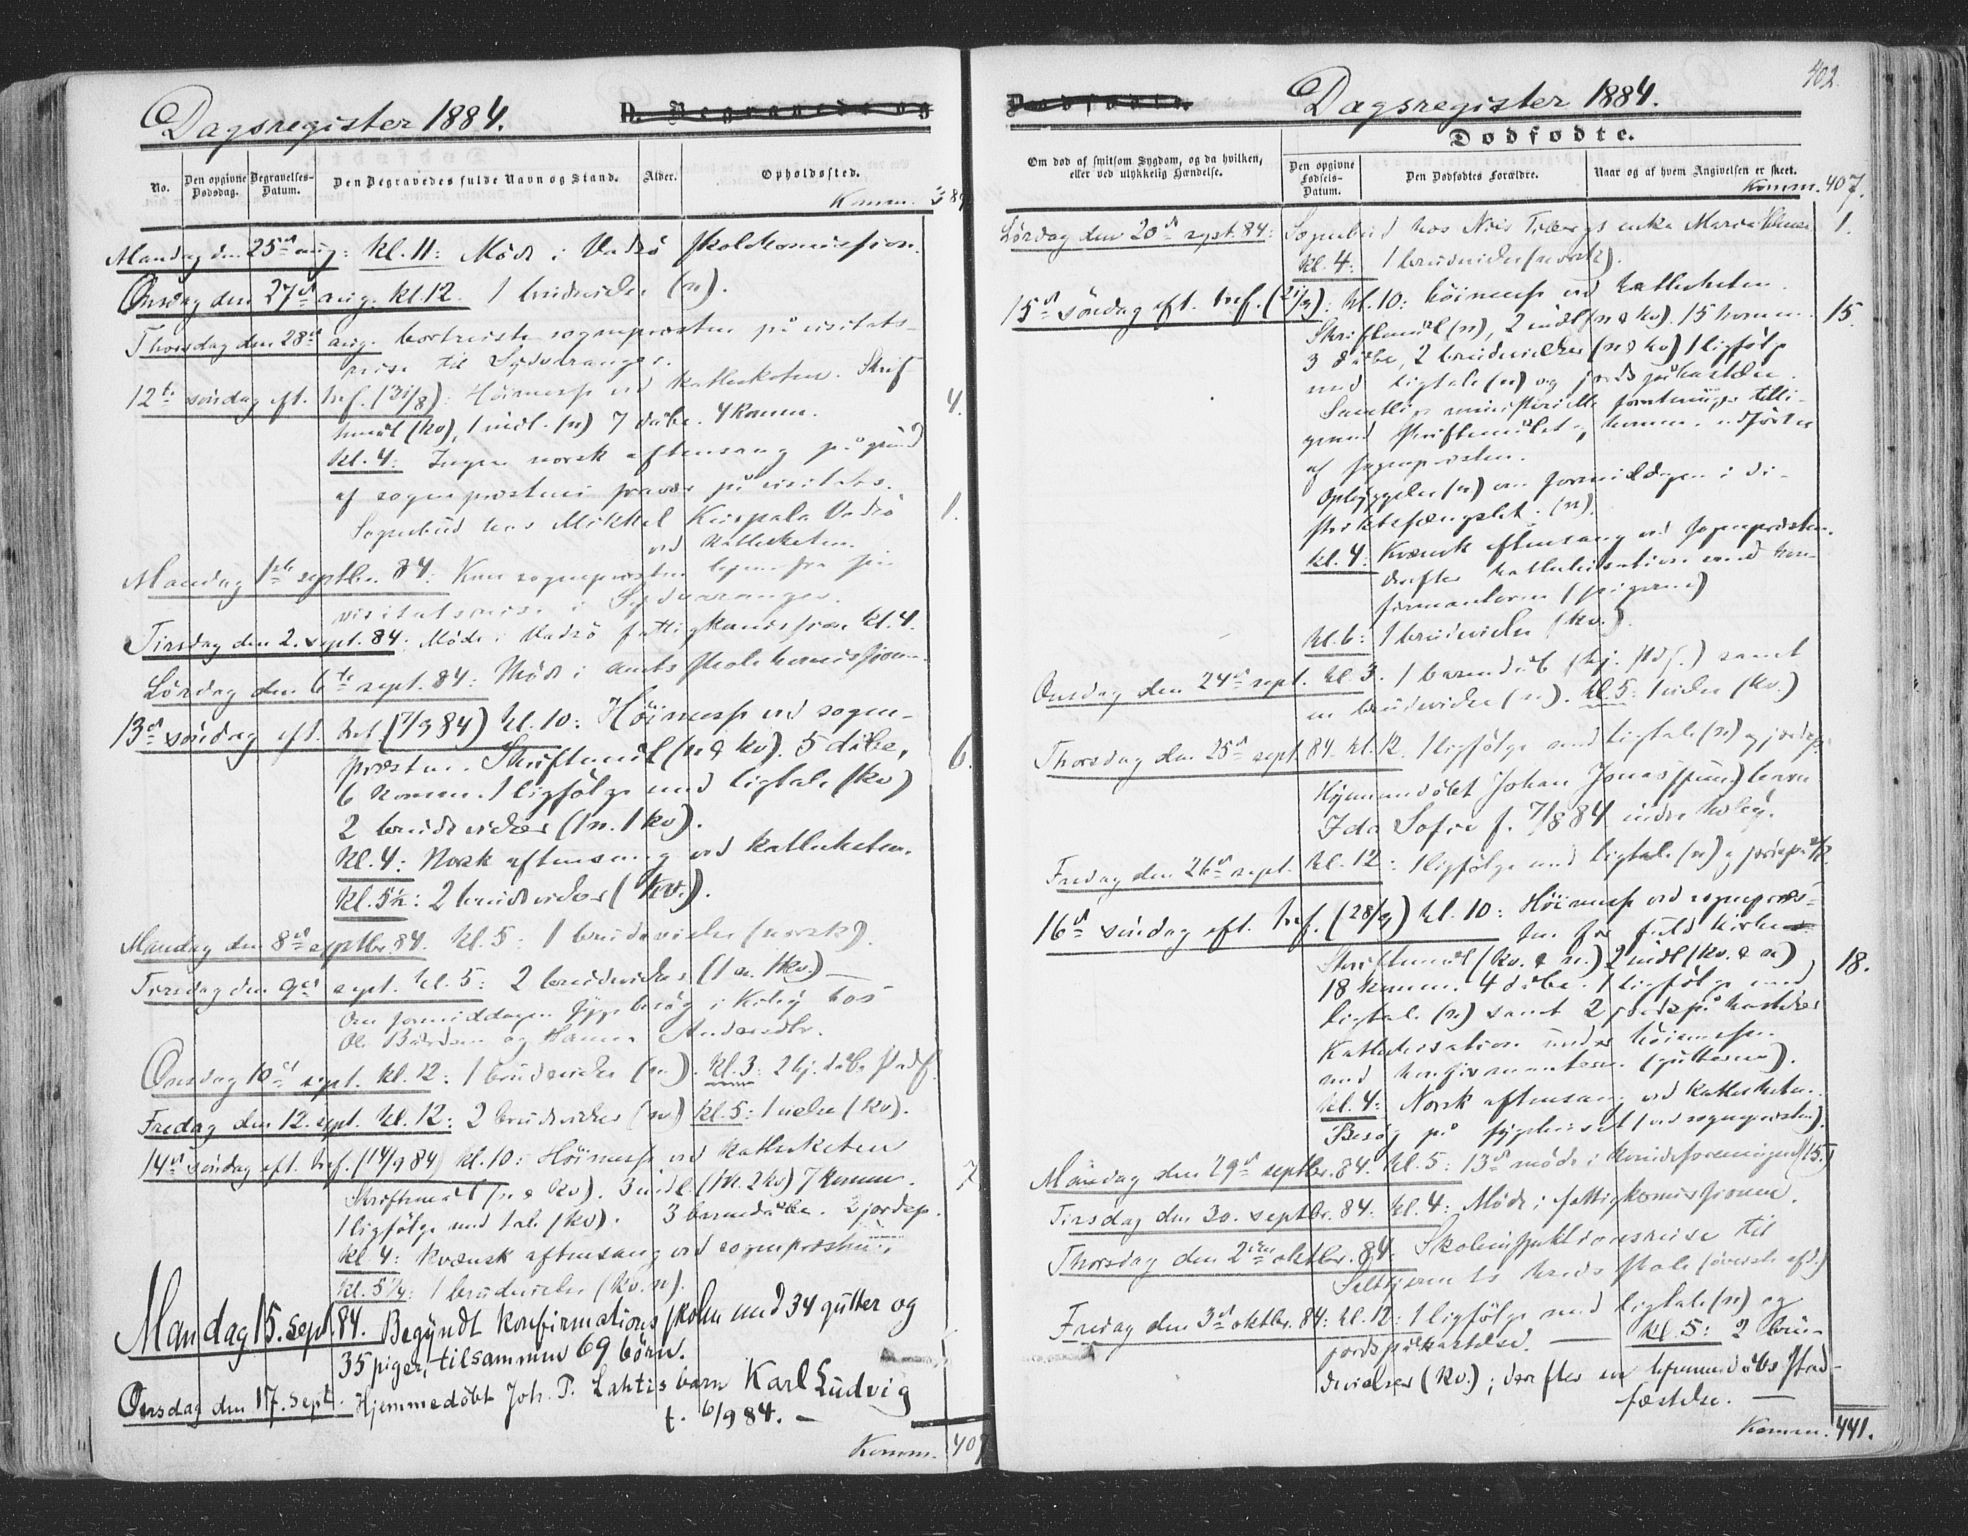 Dagsregister 1884.
D. Begravede og
No.
Den opgivne Dødsdag.
Begravelses-Datum.
Den Begravedes fulde Navn og Stand.
Alder.
Opholdssted.
Komm. 389
Mandag den 25de aug: kl. 11: Möde i Vadsö skolekomission.
Onsdag den 27de aug. kl. 12. 1 brudevielse (n).
Thorsdag den 28de aug. bortreiste sognepresten på visitats-
reise til Sydvaranger.
12te söndag eft. tref. (31/8): Höimesse ved katteketen. Skrif
temål (kv), 1 indl. (n) 7 dåbe. 4 komm. 4.
kl. 4: Ingen norsk aftensang på grund
af sogneprestens fravær på visitats.
Sognebud hos Mikkel Kuspala Vadsö 1.
ved katteketen.
Mandag 1ste septbr. 84: Kom sognepresten hjem fra sin
visitatsreise i Sydvaranger.
Tirsdag den 2. sept. 84: Möde i Vadsö fattigkomission kl. 4.
Lördag den 6te sept. 84: Möde i amtsskolekomissionen.
13de söndag eft. tref. (7/9 84) kl. 10: Höimesse ved sogne-
presten. Skriftemål (n & kv). 5 dåbe, 6.
6 komm. 1 ligfölge med ligtale (kv)
2 brudevielser (1 n. 1 kv).
kl. 4: Norsk aftensang ved katteketen.
kl. 5½: 2 brudevielser (kv.).
Mandag den 8de septbr. 84. kl. 5: 1 brudevielse (norsk).
Tirsdag den 9de sept. kl. 5: 2 brudevielser (1 n. 1 kv.) —
Om formiddagen sygebesög i Kiby hos
Ole Bårdsen og Hanna Andersdtr.
Onsdag 10de sept. kl. 12: 1 brudevielse (n). kl. 3: 2 hj. dåbs stadf.
Fredag den 12. sept. kl. 12: 2 brudevielser (n) kl. 5: 1 vielse (kv).
14de söndag eft. tref. (14/9 84) kl. 10: Höimesse ved katteketen
Skriftemål (n & kv). 3 indl. (1 n. 2 kv) 7 komm. 7
1 ligfölge med tale (kv). 3 barnedåbe. 2 jordsp.
kl 4: Kvænsk aftensang ved sognepresten.
kl. 5¼: 1 brudevielse (kv. n).
Mandag 15. sept. 84. Begyndt konfirmationsskolen med 34 gutter og
35 piger, tilsammen 69 börn.
Onsdag den 17. sept. Hjemmedöbt Joh. P. Lahtis barn Karl Ludvig
f. 6/9 84. —
Komm. 407
402.
Dødfødte.
Dagsregister 1884.
Dødfødte.
Om død af smitsom Sygdom, og da hvilken,
eller ved ulykkelig Hændelse.
Den opgivne Fødsels-Datum.
Den Dødfødtes Forældre.
Naar og af hvem Angivelsen er skeet.
Komm. 407.
Lördag den 20de sept. 84: Sognebud hos Nils enke Maria 1.
kl. 4: 1 brudevielse (norsk).
15de söndag eft. tref. (21/9): kl. 10: Höimesse ved katteketen.
Skriftemål (n), 2 indl (n & kv). 15 komm. 15.
3 dåbe, 2 brudevielser (n & kv) 1 ligfölge
med ligtale (n) og jordspåkastelse.
Samtlige ministerielle forretninger tilli-
gemed skriftemålet og komm. udförtes
af sognepresten.
Opbyggelse (n) om formiddagen i di-
striktsfængslet. (n).
kl. 4: Kvænsk aftensang ved sognepresten.
derefter kattekisation med kon-
firmanterne (pigerne)
kl. 6: 1 brudevielse (kv.).
Onsdag den 24de sept. kl 3. 1 barnedåb (hj. stdf.) samt
en brudevielse (n). kl. 5: 1 vielse (kv.)
Thorsdag den 25de sept. 84. kl. 12. 1 ligfölge med ligtale (n) og jordsp.
Hjemmedöbt Johan Jonas barn
Ida Sofie f. 7/8 84 indre Kiby.
Fredag den 26de sept. kl. 12: 1 ligfölge med ligtale (n) og jordspåk.
16de söndag eft. tref. (28/9) kl. 10: Höimesse ved sognepres-
ten for fuld kirke.
Skriftemål (kv. & n.) 2 indl (kv. & n) 18.
18 komm. 4 dåbe. 1 ligfölge med
ligtale (n) samt 2 jordspåkastelser
Kattekisation under höimessen
med konfirmanterne (gutterne).
kl. 4: Norsk aftensang ved katteketen.
Besög på sygehuset (ved sognepresten).
Mandag den 29de septbr. 84. kl. 5: 13de möde i kvindeforeningen (15.)
Tirsdag den 30. septbr. 84. kl. 4: Möde i fattigkomissionen.
Thorsdag den 2den oktbr. 84: Skoleinspektionsreise til
kreds skole (överste afd.)
Fredag den 3de oktbr. 84: kl. 12: 1 ligfölge med ligtale (n) og
jordspåkastelse. — kl. 5: 2 bru-
devielser (kv.); derefter en hjemmedåbs stad-
fæstelse. —
Komm. 441.